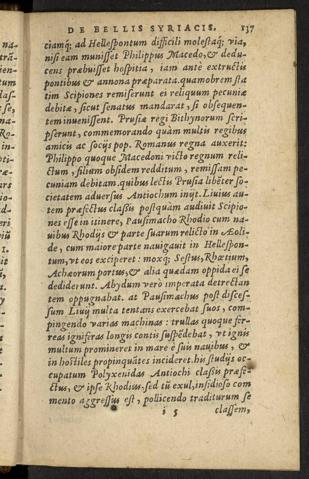 DE BELLIS SYRIACIS. 137
ciamq́; ad Hellespontum difficili molestaq́; via,
nisi eam munisset Philippus Macedo, & dedu-
cens præbuisset hospitia, iam antè extructis
pontibus & annona præparata. quamobrem sta
tim Scipiones remiserunt ei reliquum pecuniæ
debitæ, sicut senatus mandarat, si obsequen-
tem inuenissent. Prusiæ regi Bithynorum scri-
pserunt, commemorando quàm multis regibus
amicis ac socijs pop. Romanus regna auxerit:
Philippo quoque Macedoni victo regnum reli-
ctum, filium obsidem redditum, remissam pe-
cuniam debitam. quibus lectis Prusia libēter so-
cietatem aduersus Antiochum inijt. Liuius au-
tem præfectus classis postquàm audiuit Scipio-
nes esse in itinere, Pausimacho Rhodio cum na-
uibus Rhodijs & parte suarum relicto in Æoli-
de, cum maiore parte nauigauit in Hellespon-
tum, vt eos exciperet: moxq́; Sestus, Rhœtium,
Achæorum portus, & alia quædam oppida ei se
dediderunt. Abydum verò imperata detrectan
tem oppugnabat. at Pausimachus post disces-
sum Liuij multa tentans exercebat suos, com-
pingendo varias machinas: trullas quoque fer-
reas igniferas longis contis suspēdebat, vt ignis
multum prominēret in mare è suis nauibus, &
in hostiles propinquātes incideret. his studijs oc-
cupatum Polyxenidas Antiochi classis præfe-
ctus, & ipse Rhodius, sed tū exul, insidioso com
mento aggressus est, pollicendo traditurum se
i 5 classem,
na-